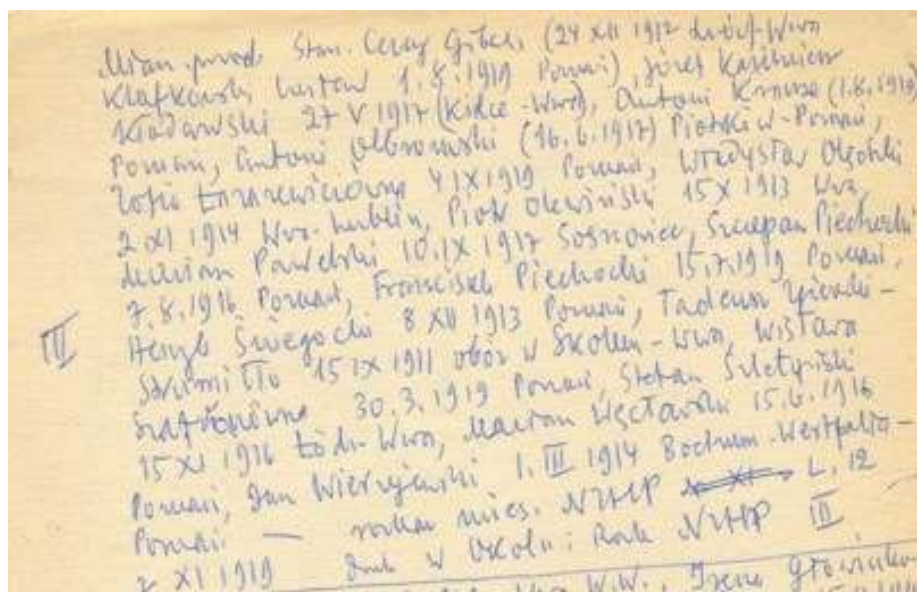 Mian. przod. Stan. Cezary Giber, (24 XII 1912 Łódź-Wwa
Klafkowski Gustaw 1.8.1919 Poznań), Józef Kazimierz
27 V 1917 (Kielce-Wwa), Antoni Krause (1.8.1919)
Poznań, Antoni Olbromski (16.6.1917) Piotrków-Poznań,
Zofia Łazarewiczówna 4 IX 1919 Poznań, Władysław Olędzki
2 XI 1914 Wwa-Lublin, Piotr Olewiński 15 X 1913 Wwa,
Pawelski 10.IX 1917 Sosnowiec, Szczepan Piechocki
7.8.1916 Poznań, Franciszek Piechocki 15.7.1919 Poznań,
III Henryk Śniegocki 8 XII 1913 Poznań, Tadeusz
15 IX 1911 obóz w Skolem-Wwa, Wisława
30.3.1919 Poznań, Stefan
15 XI 1916 Łódź-Wwa, Marian Węcławski 15.6.1916
Poznań, Jan Wierzejewski 1.III 1914 Bochum-Westfalia-
Poznań — rozkaz mies. NZHP L. 12
2 XI 1919 Druk w : Rozk NZHP III
W.W., Irena